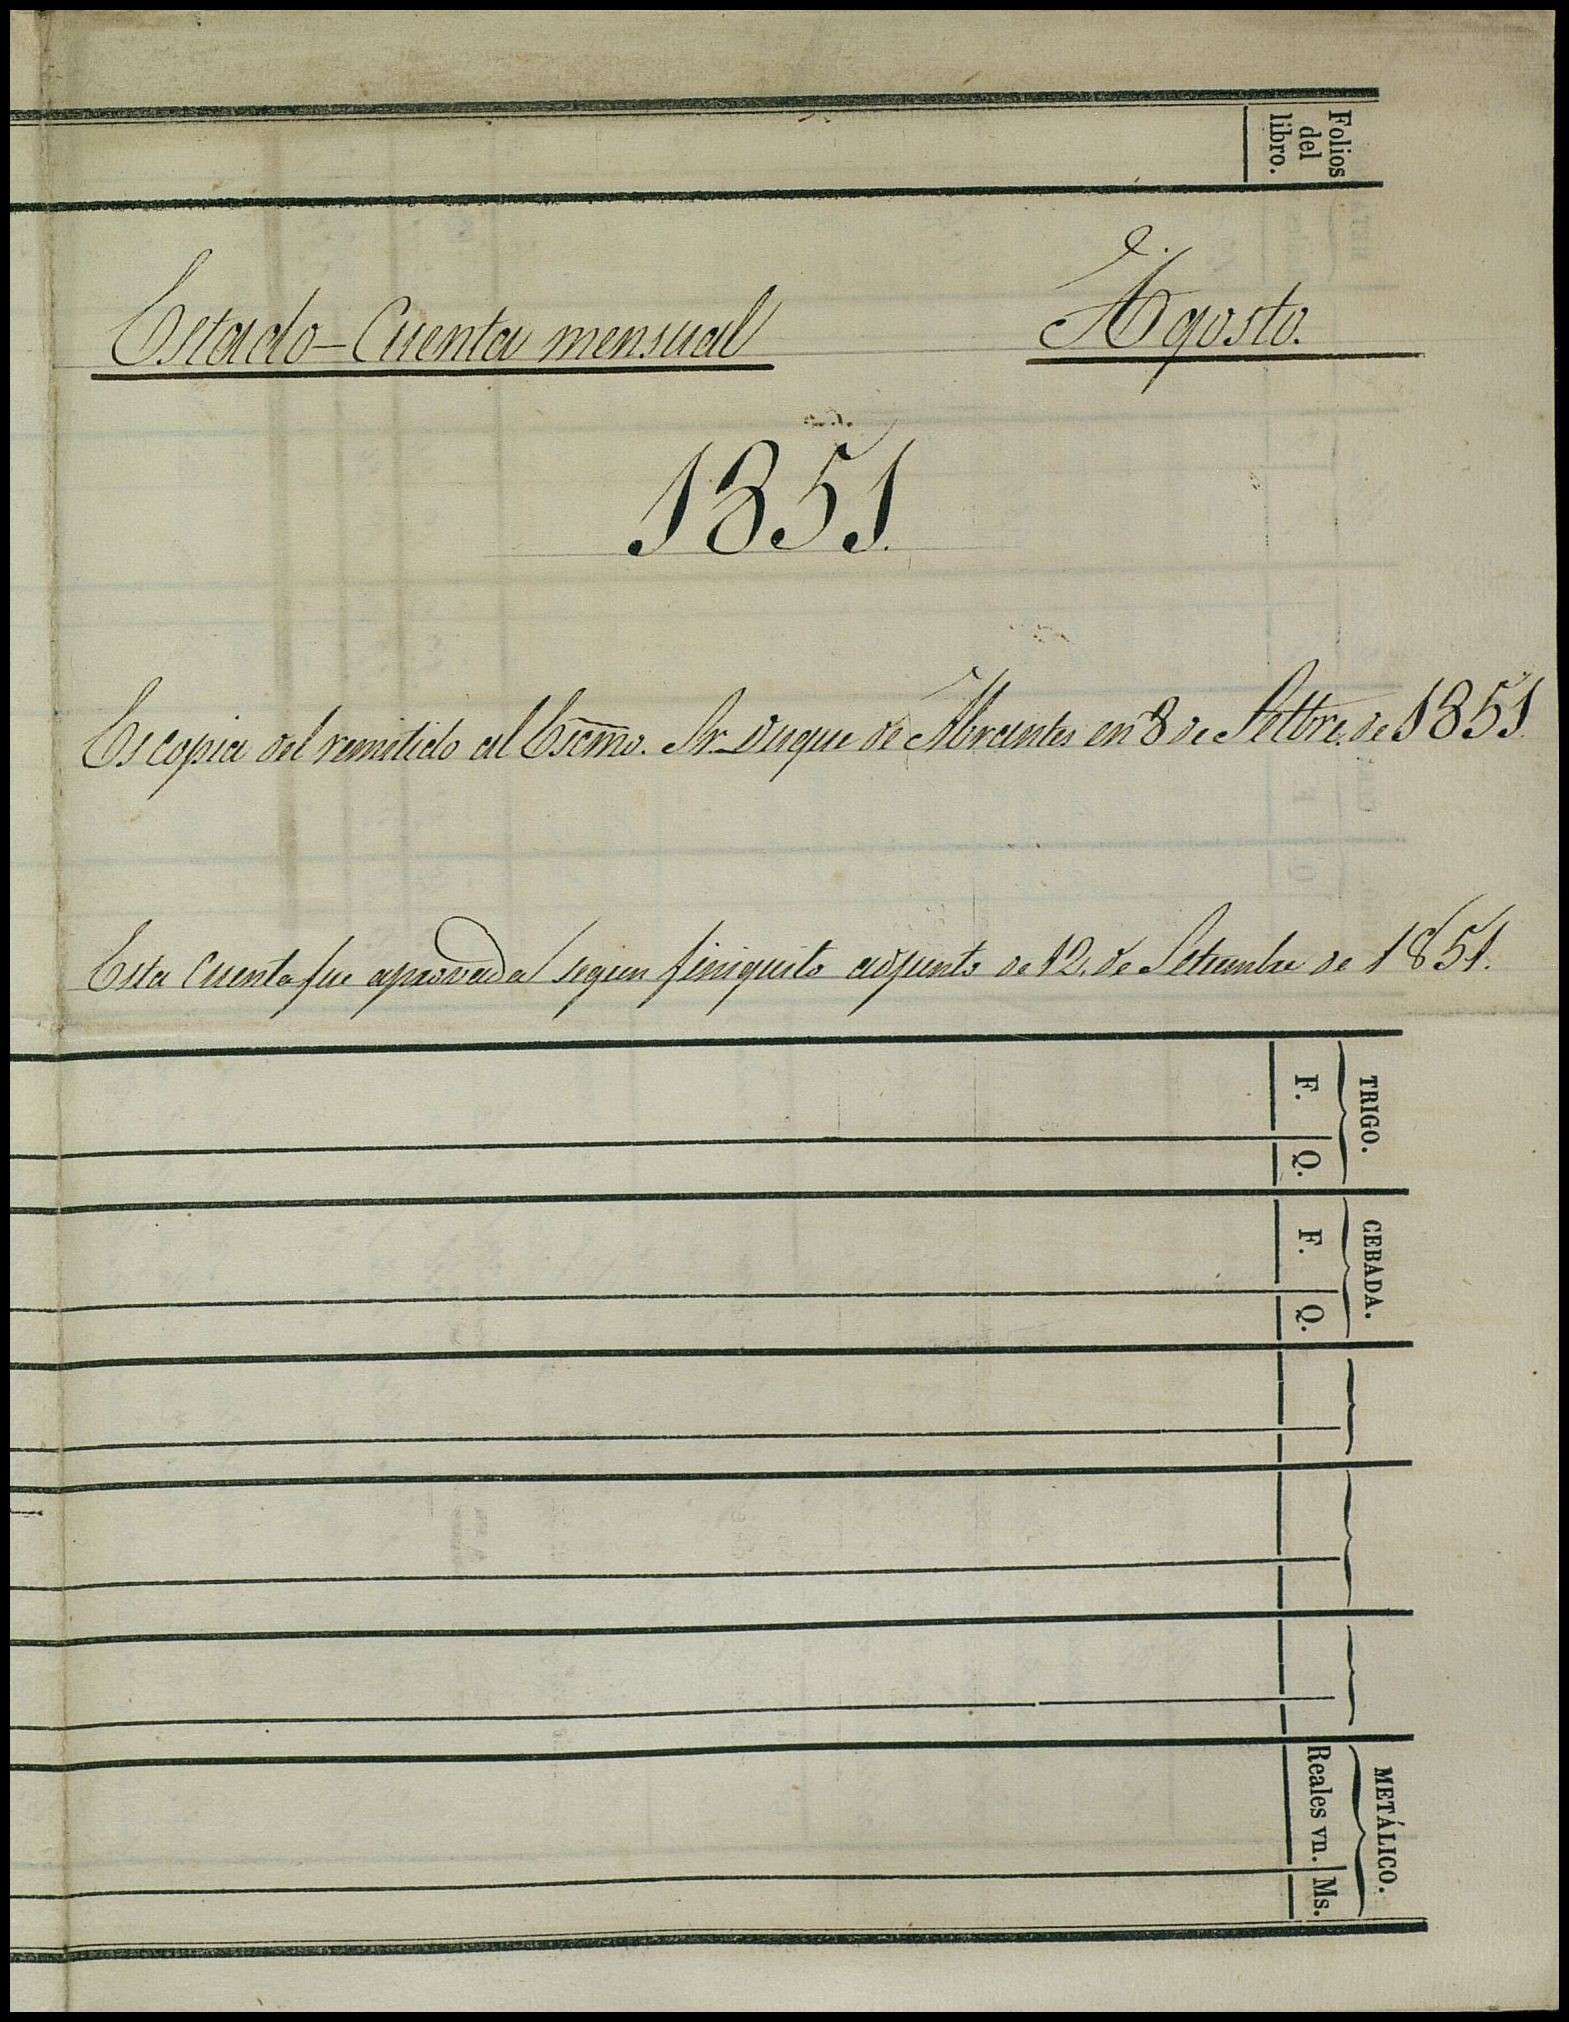 Folios
del
libro.
Estado-Cuenta mensual Agosto.
1851.
Es copia del remitido al Escmo. Sr. Duque de Abrantes en 8 de Setbre. de 1851.
Esta cuenta fue aprovada segun finiquito adjunto de 12. de Setiembre de 1851.
TRIGO.
F. Q.
CEBADA.
F. Q.
METÁLICO.
Reales vn. Ms.